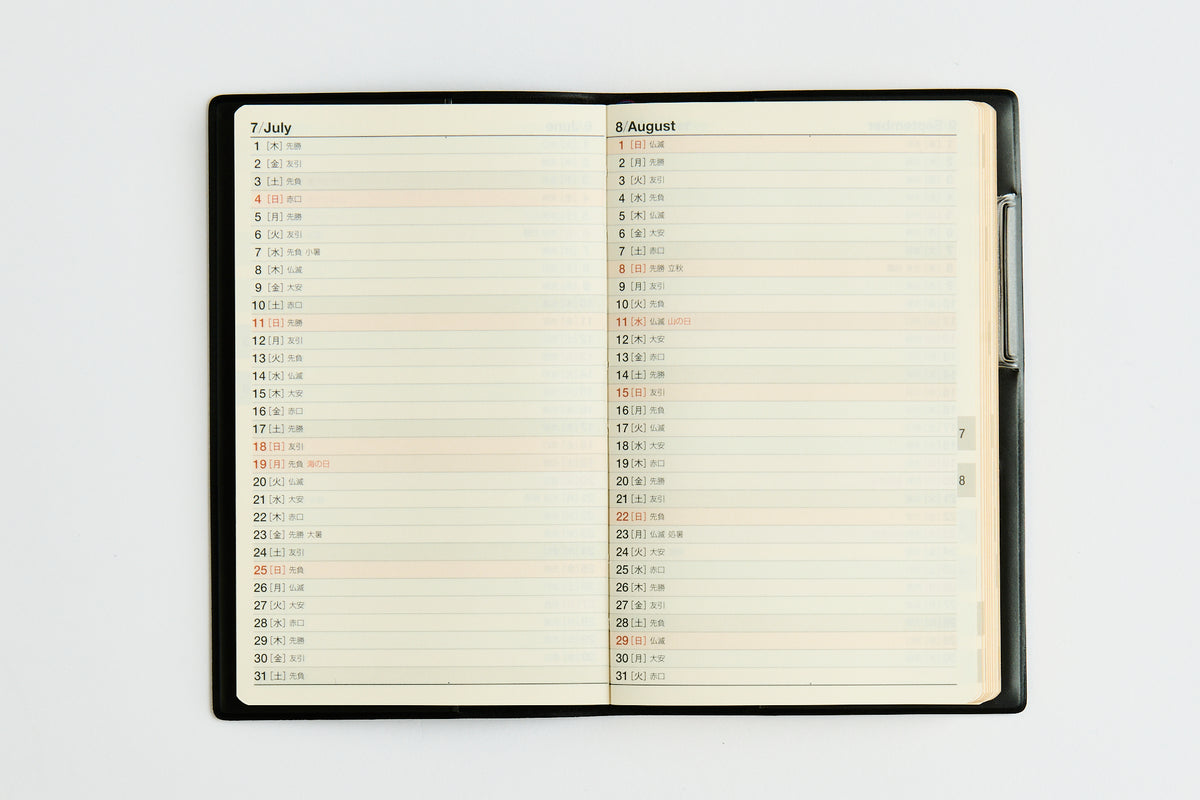 7/July
1 [木] 先勝
2 [金] 友引
3 [土] 先負
4 [日] 赤口
5 [月] 先勝
6 [火] 友引
7 [水] 先負 小暑
8 [木] 仏滅
9 [金] 大安
10 [土] 赤口
11 [日] 先勝
12 [月] 友引
13 [火] 先負
14 [水] 仏滅
15 [木] 大安
16 [金] 赤口
17 [土] 先勝
18 [日] 友引
19 [月] 先負 海の日
20 [火] 仏滅
21 [水] 大安
22 [木] 赤口
23 [金] 先勝 大暑
24 [土] 友引
25 [日] 先負
26 [月] 仏滅
27 [火] 大安
28 [水] 赤口
29 [木] 先勝
30 [金] 友引
31 [土] 先負
8/August
1 [日] 仏滅
2 [月] 先勝
3 [火] 友引
4 [水] 先負
5 [木] 仏滅
6 [金] 大安
7 [土] 赤口
8 [日] 先勝 立秋
9 [月] 友引
10 [火] 先負
11 [水] 仏滅 山の日
12 [木] 大安
13 [金] 赤口
14 [土] 先勝
15 [日] 友引
16 [月] 先負
17 [火] 仏滅
18 [水] 大安
19 [木] 赤口
20 [金] 先勝
21 [土] 友引
22 [日] 先負
23 [月] 仏滅 処暑
24 [火] 大安
25 [水] 赤口
26 [木] 先勝
27 [金] 友引
28 [土] 先負
29 [日] 仏滅
30 [月] 大安
31 [火] 赤口
7
8